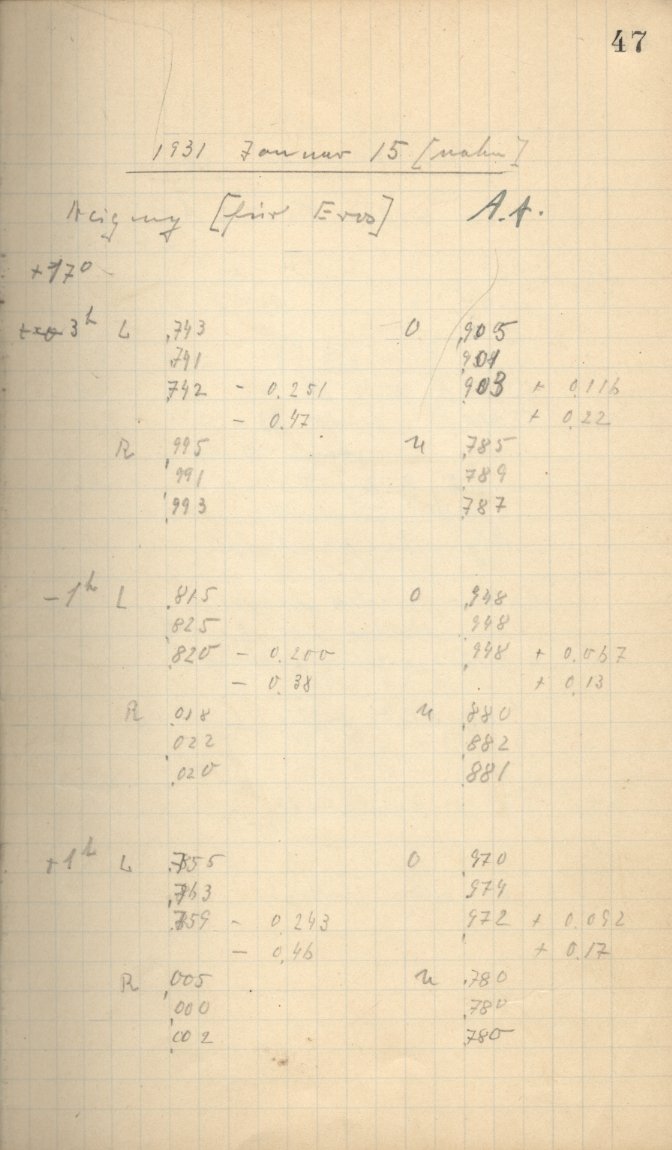 47
1931 Januar 15 [nahm]
Neigung [für Eros] A.A.
+17°
3h L ,743 O ,905
,741 ,901
,742 - 0,251 ,903 + 0,116
- 0,47 + 0,22
R ,995 U ,785
,991 ,789
,993 ,787
-1h L ,815 O ,948
,825 ,948
,820 - 0,200 ,948 + 0,067
- 0,38 + 0,13
R ,018 U ,880
,022 ,882
,020 ,881
+1h L ,755 O ,970
,763 ,974
,759 - 0,243 ,972 + 0,092
- 0,46 + 0,17
R ,005 U ,780
,000 ,780
,002 ,780